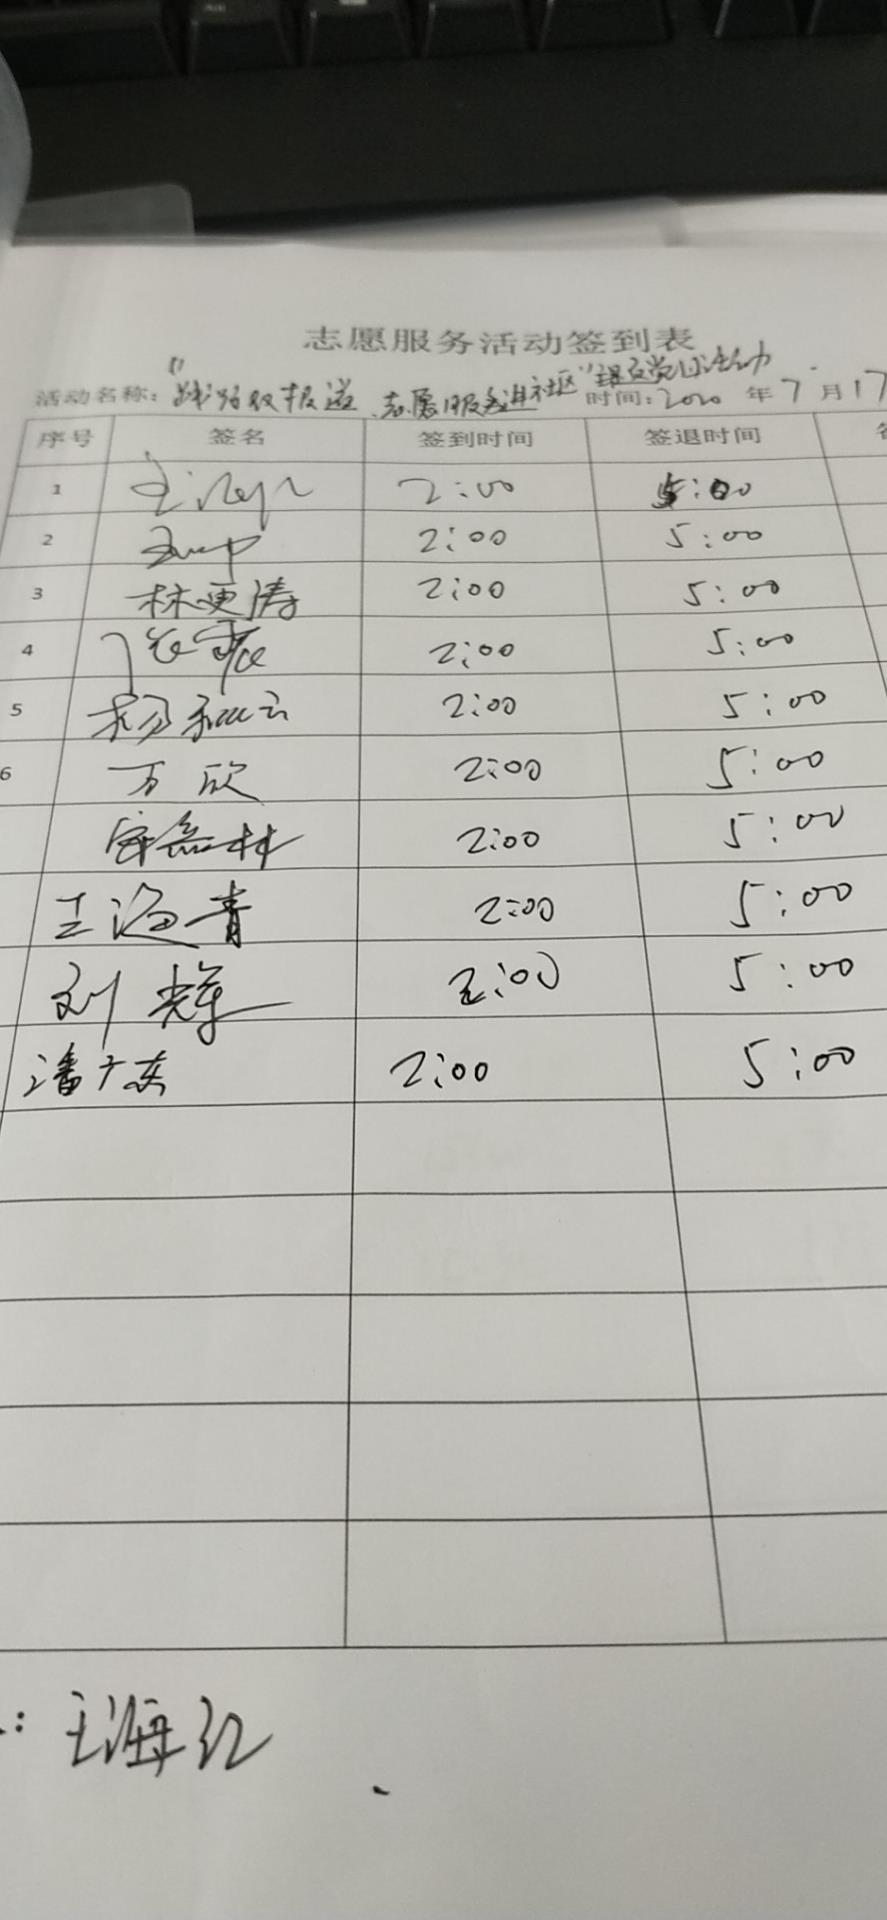 志愿服务活动签到表
活动名称：" 双报道 志愿服务进社区" 主题党日活动 时间：2020 年 7 月 17
序号 签名 签到时间 签退时间
1 2:00 5:00
2 2:00 5:00
3 林更涛 2:00 5:00
4 2:00 5:00
5 杨 2:00 5:00
6 万欣 2:00 5:00
2:00 5:00
王海青 2:00 5:00
刘辉 2:00 5:00
潘广东 2:00 5:00
：王海红